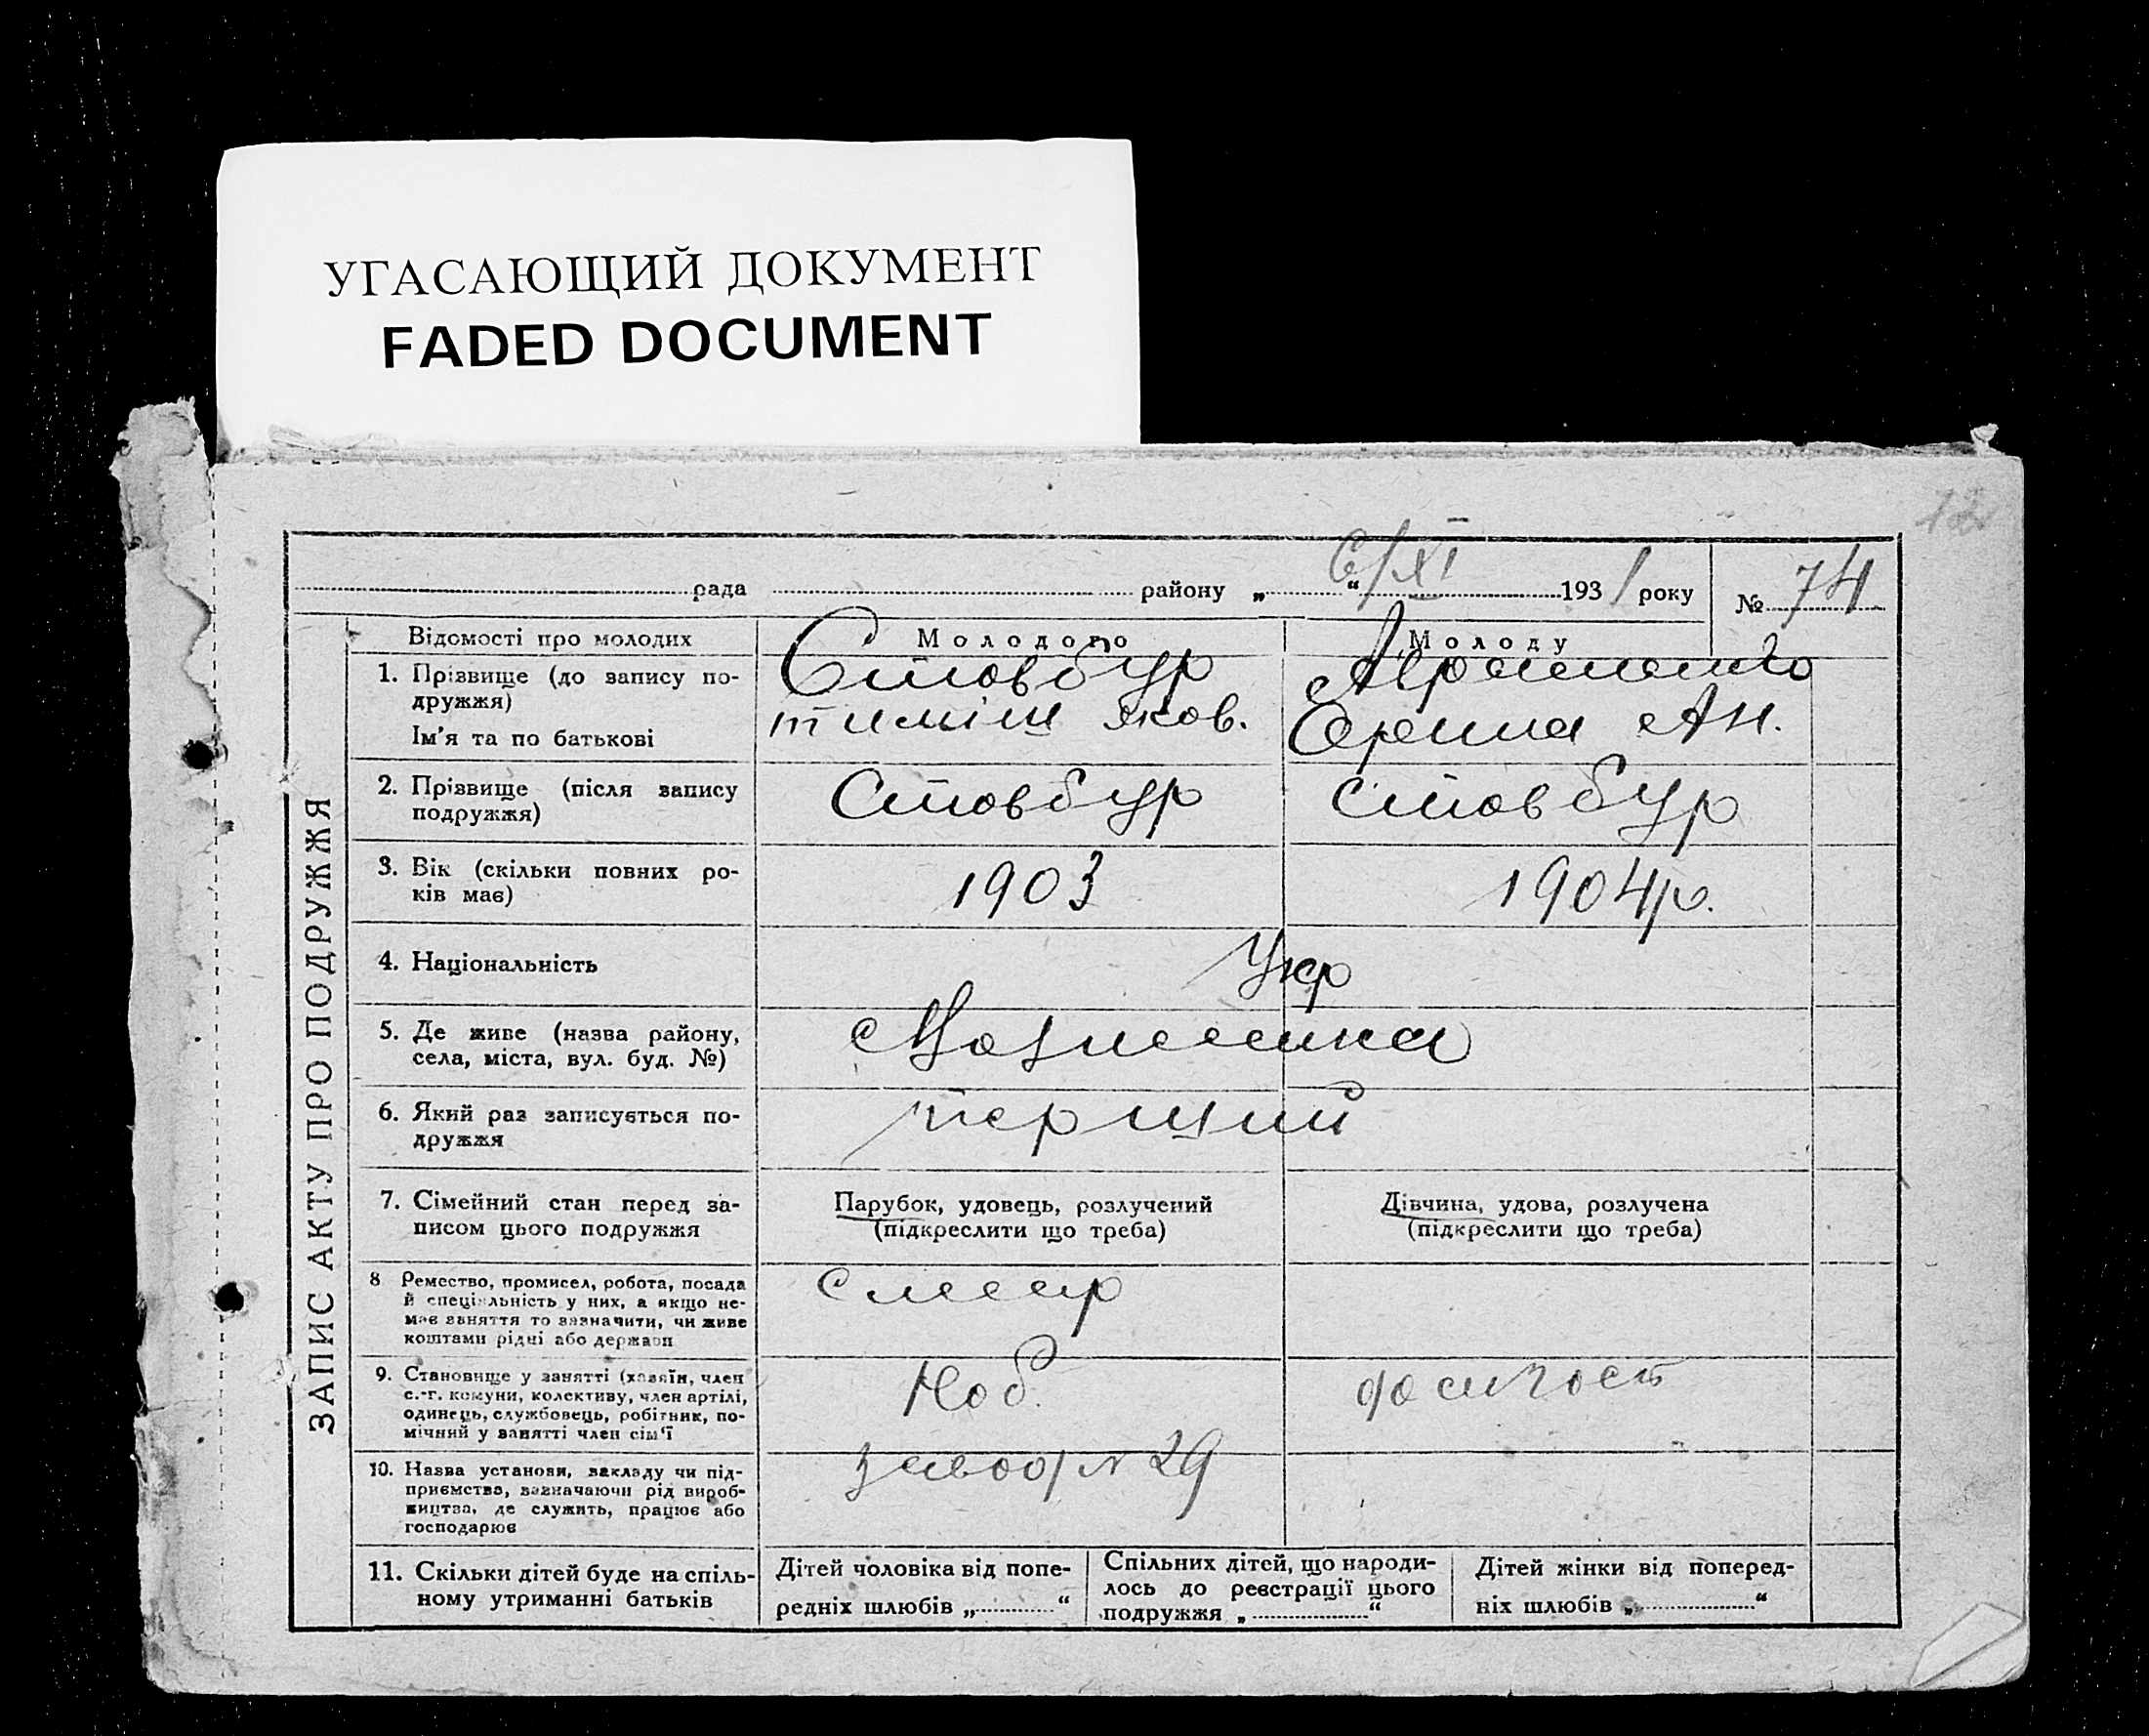 УГАСАЮЩИЙ ДОКУМЕНТ
FADED DOCUMENT
12
рада району „ 6/XI “ 1931 року № 74
ЗАПИС АКТУ ПРО ПОДРУЖЖЯ
Відомості про молодих
Молодого
Молоду
1. Прізвище (до запису по-
дружжя)
Ім'я та по батькові
Стовбур
тиміш Яков.
Ан.
2. Прізвище (після запису
подружжя)
Стовбур
Стовбур
3. Вік (скільки повних ро-
ків має)
1903
1904р.
4. Національність
Укр
5. Де живе (назва району,
села, міста, вул. буд. №)
6. Який раз записується по-
дружжя
перший
7. Сімейний стан перед за-
писом цього подружжя
Парубок, удовець, розлучений
(підкреслити що треба)
Дівчина, удова, розлучена
(підкреслити що треба)
8 Ремество, промисел, робота, посада
й спеціальність у них, а якщо не-
має заняття то зазначити, чи живе
коштами рідні або держави
9. Становище у занятті (хазяїн, член
с.-г. комуни, колективу, член артілі,
одинець, службовець, робітник, по-
мічний у занятті член сім'ї
10. Назва установи, закладу чи під-
приємства, зазначаючи рід вироб-
ництва, де служить, працює або
господарює
завод N 29
11. Скільки дітей буде на спіль-
ному утриманні батьків
Дітей чоловіка від попе-
редніх шлюбів „ “
Спільних дітей, що народи-
лось до реєстрації цього
подружжя „ “
Дітей жінки від поперед-
ніх шлюбів „ “